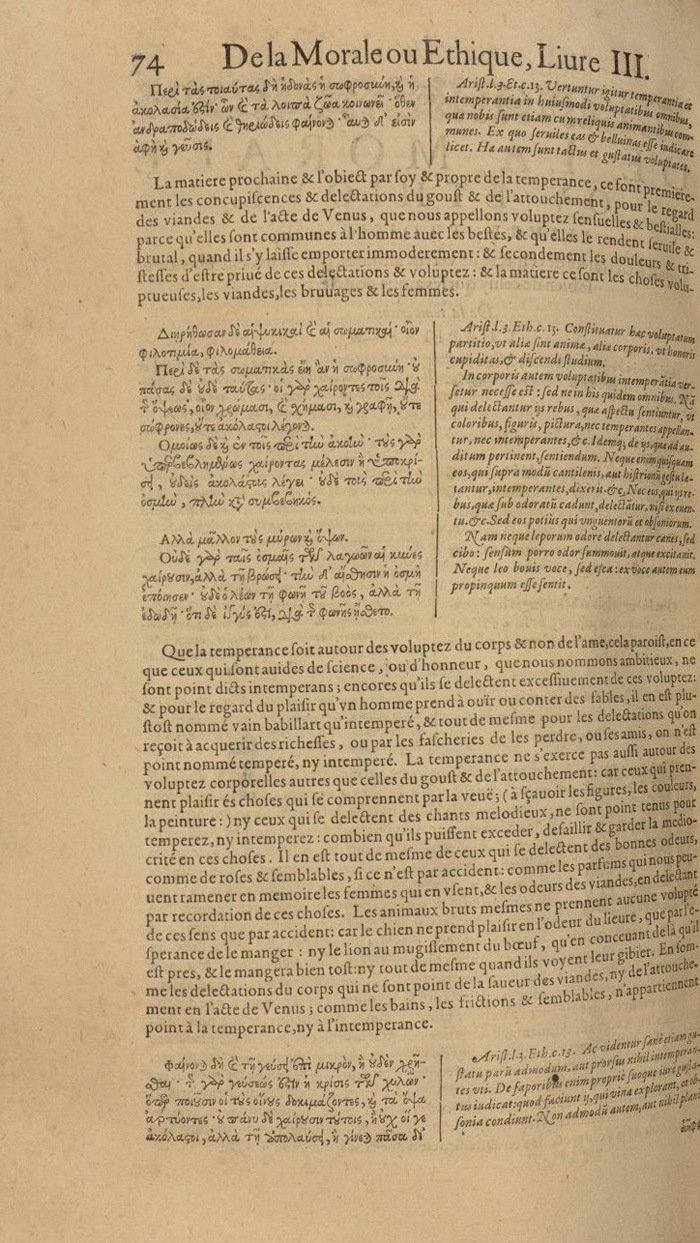 74 De la Morale ou Ethique, Liure III.
Περὶ τὰς τοιαύτας δὴ ἡδονὰς ἡ σωφροσύνη, ϗ ἡ
ἀκολασία ἐστὶν· ὧν ϗ τὰ λοιπὰ ζῶα κοινωνεῖ· ὅθεν
ἀνδραποδώδεις ϗ θηριώδεις φαίνον). αὗ) δ' εἰσὶν
ἁφὴ ϗ γεῦσις.
Arist.l.3.Et.c.13. Vertuntur igitur temperantia et
intemperantia in huiusmodi voluptatibus omnibus,
quæ nobis sunt etiam cum reliquis animantibus com-
munes. Ex quo seruiles eas & belluinas esse iudicare
licet. Hæ autem sunt tactus et gustatus voluptates.
La matiere prochaine & l'obiect par soy & propre de la temperance, ce sont premiere-
ment les concupiscences & delectations du goust & de l'attouchement, pour le regard
des viandes & de l'acte de Venus, que nous appellons voluptez sensuelles & bestialles:
parce qu'elles sont communes à l'homme auec les bestes, & qu'elles le rendent seruile &
brutal, quand il s'y laisse emporter immoderement: & secondement les douleurs & tri-
stesses d'estre priué de ces delectations & voluptez: & la matiere ce sont les choses volu-
ptueuses, les viandes, les bruuages & les femmes.
Διῃρήσθωσαν δὲ αἱ ψυχικαὶ ϗ αἱ σωματικαί· οἷον
φιλοτιμία, φιλομάθεια.
Περὶ δὲ τὰς σωματικὰς εἴη ἂν ἡ σωφροσύνη· οὐ
πάσας δὲ οὐδὲ ταύτας· οἱ γὰρ χαίροντες τοῖς διὰ
τ ὄψεως, οἷον χρώμασι, ϗ σχήμασι, ϗ γραφῇ, οὔτε
σώφρονες, οὔτε ἀκόλαστοι λέγον).
Ὁμοίως δὲ ϗ ἐν τοῖς περὶ τὴν ἀκοήν· τοὺς γὰρ
ὑπερβεβλημένως χαίροντας μέλεσιν ἢ ὑποκρί-
σει, οὐδεὶς ἀκολάστους λέγει· οὐδὲ τοὺς περὶ τὴν
ὀσμὴν, πλὴν κατὰ συμβεβηκός.
Ἀλλὰ μᾶλλον τοὺς μύρων ϗ ὄψων.
Οὐδὲ γὰρ ταῖς ὀσμαῖς τῶν λαγωῶν αἱ κύνες
χαίρουσιν, ἀλλὰ τῇ βρώσει· τὴν δ' αἴσθησιν ἡ ὀσμὴ
ἐποίησεν· οὐδὲ ὁ λέων τῇ φωνῇ τοῦ βοὸς, ἀλλὰ τῇ
ἐδωδῇ· ὅτι δὲ ἐγγύς ἐστι, διὰ τ φωνῆς ᾔσθετο.
Arist.l.3. Eth.c.13. Constituatur hæc voluptatum
partitio, vt aliæ sint animæ, aliæ corporis, vt honoris
cupiditas, & discendi studium.
In corporis autem voluptatibus intemperātia ver-
setur necesse est: sed ne in his quidem omnibus. Nā
qui delectantur ijs rebus, quæ aspectu sentiuntur, vt
coloribus, figuris, pictura, nec temperantes appellan-
tur, nec intemperantes, &c. Idemq; de ijs, quæ ad au-
ditum pertinent, sentiendum. Neque enim quisquam
eos, qui supra modū cantilenis, aut histrionū gestu le-
tantur, intemperantes, dixerit. &c. Nec eos, qui ijs re-
bus, quæ sub odoratū cadunt, delectātur, nisi ex euen-
tu. &c. Sed eos potiùs qui vnguentorū et obsoniorum.
Nam neque leporum odore delectantur canes, sed
cibo: sensum porro odor summouit, atque excitauit.
Neque leo bouis voce, sed esca: ex voce autem eum
propinquum esse sentit.
Que la temperance soit autour des voluptez du corps & non de l'ame, cela paroist, en ce
que ceux qui sont auides de science, ou d'honneur, que nous nommons ambitieux, ne
sont point dicts intemperans; encores qu'ils se delectent excessiuement de ces voluptez:
& pour le regard du plaisir qu'vn homme prend à ouïr ou conter des fables, il en est plu-
stost nommé vain babillart qu'intemperé, & tout de mesme pour les delectations qu'on
reçoit à acquerir des richesses, ou par les fascheries de les perdre, ou ses amis, on n'est
point nommé temperé, ny intemperé. La temperance ne s'exerce pas aussi autour des
voluptez corporelles autres que celles du goust & de l'attouchement: car ceux qui pren-
nent plaisir és choses qui se comprennent par la veuë; (à sçauoir les figures, les couleurs,
la peinture:) ny ceux qui se delectent des chants melodieux, ne sont point tenus pour
temperez, ny intemperez: combien qu'ils puissent exceder, defaillir & garder la medio-
crité en ces choses. Il en est tout de mesme de ceux qui se delectent des bonnes odeurs,
comme de roses & semblables, si ce n'est par accident: comme les parfums qui nous peu-
uent ramener en memoire les femmes qui en vsent, & les odeurs des viandes, en delectant
par recordation de ces choses. Les animaux bruts mesmes ne prennent aucune volupté
de ces sens que par accident: car le chien ne prend plaisir en l'odeur du lieure, que par l'e-
sperance de le manger: ny le lion au mugissement du bœuf, qu'en conceuant de là qu'il
est pres, & le mangera bien tost: ny tout de mesme quand ils voyent leur gibier. En som-
me les delectations du corps qui ne sont point de la saueur des viandes, ny de l'attouche-
ment en l'acte de Venus; comme les bains, les frictions & semblables, n'appartiennent
point à la temperance, ny à l'intemperance.
Φαίνον) δὴ ϗ τῇ γεύσει ἐπὶ μικρὸν, ἢ οὐδὲν χρῆ-
σθαι· τ γὰρ γεύσεώς ἐστιν ἡ κρίσις τῶν χυλῶν·
ὅπερ ποιοῦσιν οἱ τοὺς οἴνους δοκιμάζοντες, ϗ τὰ ὄψα
ἀρτύοντες· οὐ πάνυ δὲ χαίρουσιν τούτοις, ἢ οὐχ οἵ γε
ἀκόλαστοι, ἀλλὰ τῇ ἀπολαύσει, ἣ γίνε) πᾶσα δι'
Arist.l.3.Eth.c.13. Ac videntur sanè etiam gu-
statu parū admodum, aut prorsus nihil intemperan-
tes vti. De saporibus enim propriè suoque iure gusta-
tus iudicat: quod faciunt ij, qui vina explorant, et ob-
sonia condiunt. Non admodū autem, aut nihil planè